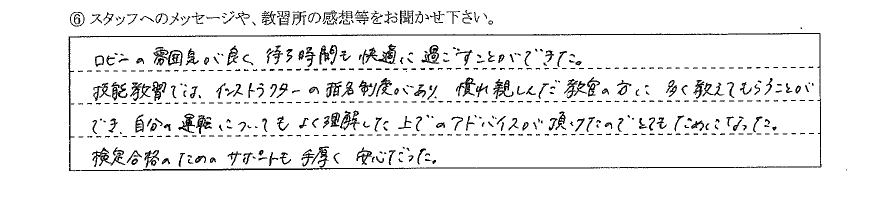 ⑥ スタッフへのメッセージや、教習所の感想等をお聞かせ下さい。
ロビーの雰囲気が良く、待ち時間も快適に過ごすことができた。
技能教習では、インストラクターの指名制度があり、慣れ親しんだ教官の方に多く教えてもらうことが
でき、自分の運転についてもよく理解した上でのアドバイスが頂けたのでとてもためになった。
検定合格のためのサポートも手厚く安心だった。